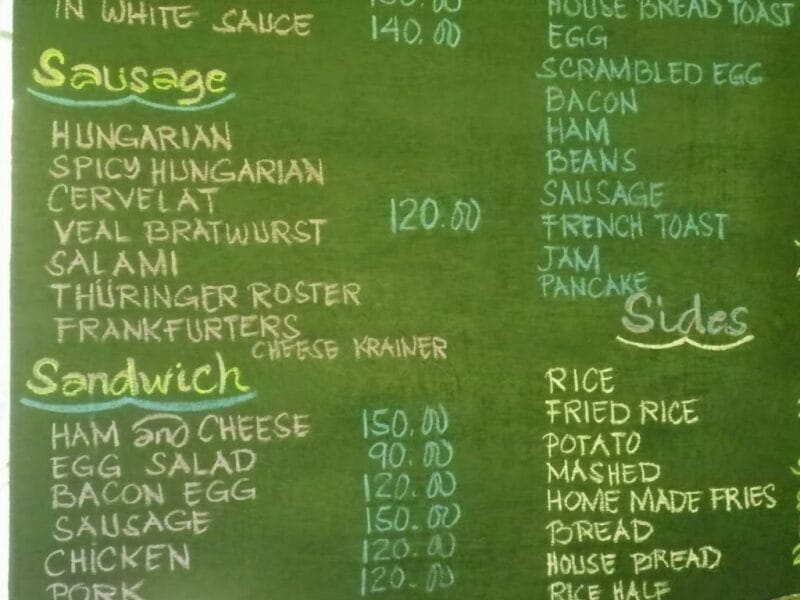 IN WHITE SAUCE 140.00
Sausage
HUNGARIAN
SPICY HUNGARIAN
CERVELAT
VEAL BRATWURST 120.00
SALAMI
THÜRINGER ROSTER
FRANKFURTERS
CHEESE KRAINER
Sandwich
HAM and CHEESE 150.00
EGG SALAD 90.00
BACON EGG 120.00
SAUSAGE 150.00
CHICKEN 120.00
PORK 120.00
HOUSE BREAD TOAST
EGG
SCRAMBLED EGG
BACON
HAM
BEANS
SAUSAGE
FRENCH TOAST
JAM
PANCAKE
Sides
RICE
FRIED RICE
POTATO
MASHED
HOME MADE FRIES
BREAD
HOUSE BREAD
RICE HALF